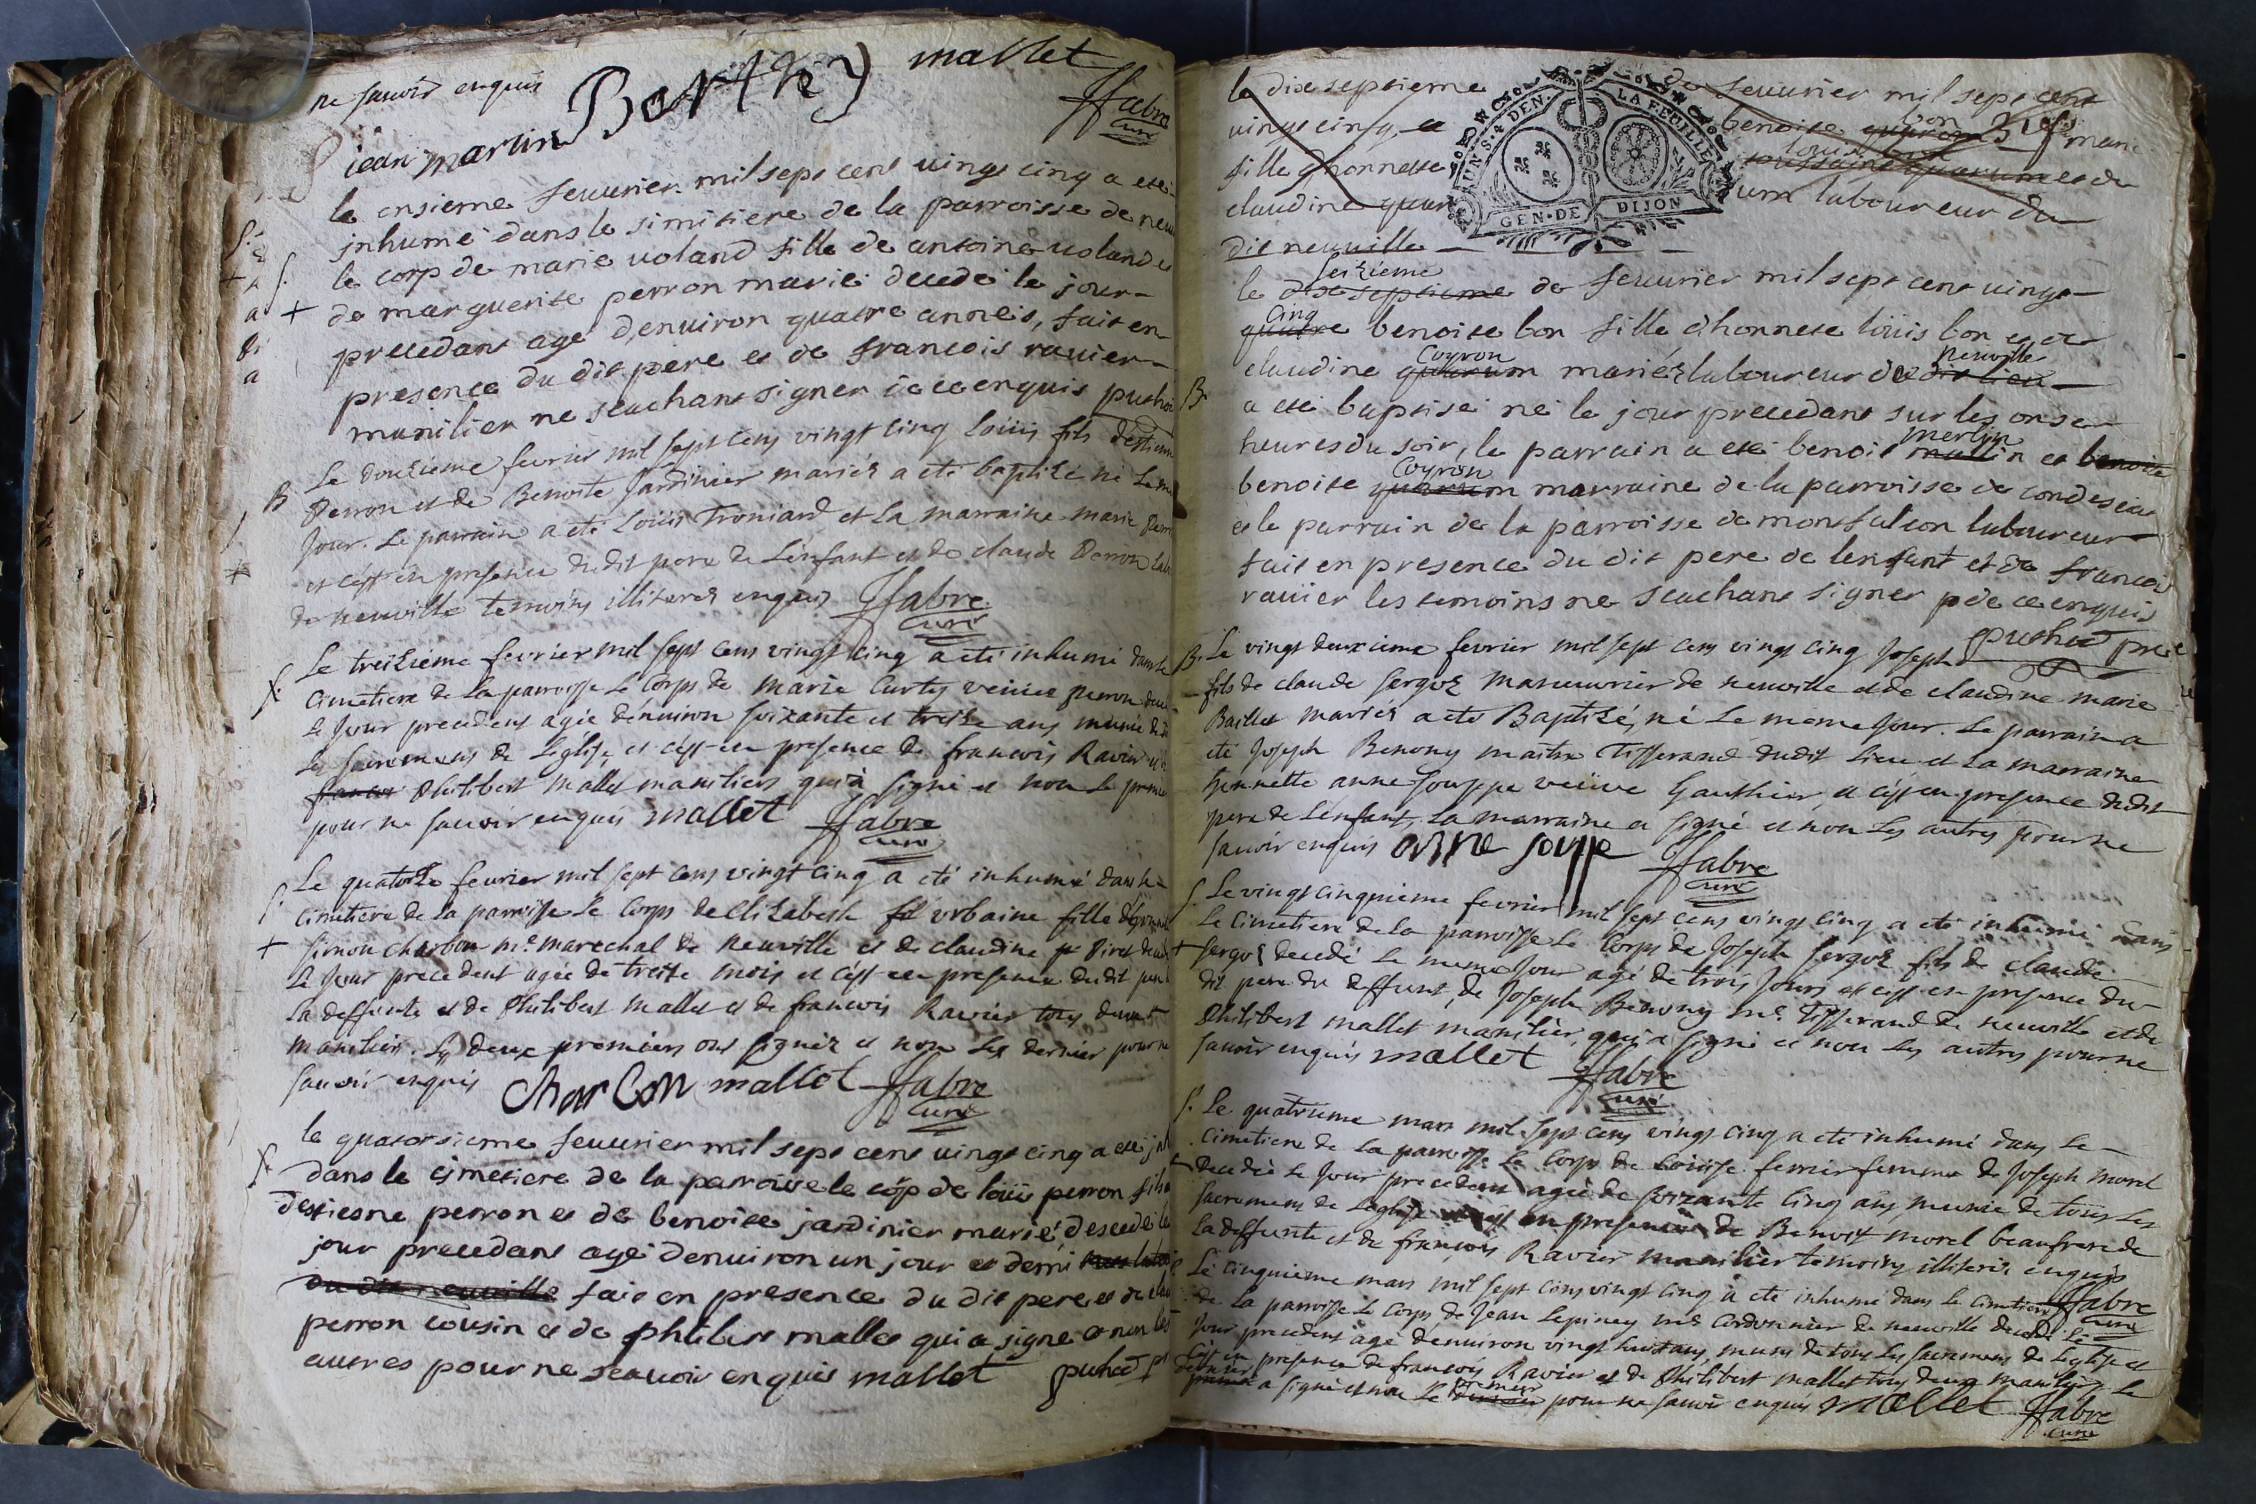 ne sauoir enquis Barthez mallet
jean martin ffabre
curé
le onsieme feuurier mil sept cent uingt cinq a eté
jnhumé dans le simitiere de la parroisse de neu
le corp de marie uoland fille de antoine uoland et
de marguerite perron marié decedé le jour
precedant agé d'enuiron quatre anneés, fait en
presence du dit pere et de francois rauier
manilier ne scachant signer de ce enquis puthod
Le douzieme fevrier mil sept cens vingt cinq Loüis fils d'estienne
Perron et de Benoite Jardinier mariéz a eté baptizé né Le me
Jour. Le parrain a eté Loüis Troniard et La marraine marie Perr
et c'est en presence dudit pere de L'enfant et de claude Perron Lab
de neuville temoins illiteréz enquis ffabre
curé
Le treizieme fevrier mil sept cens vingt cinq a eté inhumé dans le
Cimetiere de La parroisse Le Corps de marie Curty veüve perron dece
Le Jour precedent agée d'enuiron soixante et treize ans munie de
Les sacremens de L'eglise, et c'est en presence de francois Ravier
Philibert Mallet maniliers qui a signé et non Le premier
pour ne sauoir enquis mallet ffabre
curé
Le quatorze fevrier mil sept cens vingt cinq a eté inhumé dans le
Cimetiere de La parroisse Le Corps d'Elizabeth vrbaine fille d'honnete
Simon Charbon me. marechal de neuville et de claudine Piret decedée
Le Jour precedent agée de treize mois et c'est en presence dudit pere
La deffunte et de Philibert Mallet et de francois Ravier tous deux
maniliers. Les deux premiers ont signéz et non Le dernier pour ne
sauoir enquis Charbon mallet ffabre
curé
le quatorsieme feuurier mil sept cent uingt cinq a eté jnh
dans le cimetiere de la parroise le cop de loüi perron fils
d'estiesne perron et de benoite jardinier marié descedé le
jour precedant agé d'enuiron un jour et demi
fait en presence du dit pere et de clau
perron cousin et de philiber mallet qui a signé et non les
autres pour ne scauoir enquis mallet puthod p
le dix septieme de feuurier mil sept cent
JUN S. 4 DEN. LA FEUILLE
GEN. DE DIJON
uingt cinq, a benoite bon
fille d'honnette
claudine laboureur du
dit neuuille
seizieme
le dix septieme de feuurier mil sept cent uingt
cinq
quatre benoite bon fille d'honnete loüis bon et de
Coyron neuville
claudine mariéz laboureur de dit lieu
a eté baptisé né le jour precedant sur les onse
merlin
heures du soir, le parrain a eté benoit et benoite
Coyron
benoite marraine de la parroisse de condesiat
et le parrain de la parroisse de montfalcon laboureur
fait en presence du dit pere de lenfant et de francois
rauier les temoins ne scachant signer de ce enquis
puthod pre
Le vingt deuxieme fevrier mil sept cens vingt cinq Joseph
fils de claude Sergoz manouvrier de neuville et de claudine marie
Baillet mariéz a eté Baptizé, né Le même Jour. Le parrain a
eté Joseph Benony maître Tisserand dudit Lieu et La marraine
honnette anne Souppe veüve Gauthier, et c'est en presence dudit
pere de L'enfant, La marraine a signé et non Les autres pour ne
sauoir enquis anne soupe ffabre
curé
Le vingt cinquieme fevrier mil sept cens vingt cinq a eté inhumé dans
Le Cimetiere de La parroisse Le Corps de Joseph Sergoz fils de claude
Sergoz decedé Le meme Jour agé de trois Jours et c'est en presence du
dit pere du deffunt, de Joseph Benony me. Tisserand de neuville et de
Philibert Mallet manilier, qui a signé et non Les autres pour ne
sauoir enquis mallet ffabre
curé
Le quatrieme mars mil sept cens vingt cinq a eté inhumé dans Le
Cimetiere de La parroisse Le Corps de Loüise ferrier femme de Joseph Morel
decedée Le Jour precedent agée de soixante cinq ans munie de tous Les
sacremens de L'eglise en presence de Benoit Morel beaufrere de
La deffunte et de francois Ravier manilier temoins illiteréz enquis
ffabre
curé
Le cinquieme mars mil sept cens vingt cinq a eté inhumé dans Le Cimetiere
de La parroisse Le Corps de Jean Lepiney me. Cordonnier de neuville decedé Le
Jour precedent agé d'enuiron vingt huit ans, muny de tous Les sacremens de L'eglise et
c'est en presence de francois Ravier et de Philibert Mallet tous deux maniliers Le
dernier a signé et non Le premier pour ne sauoir enquis mallet ffabre
curé